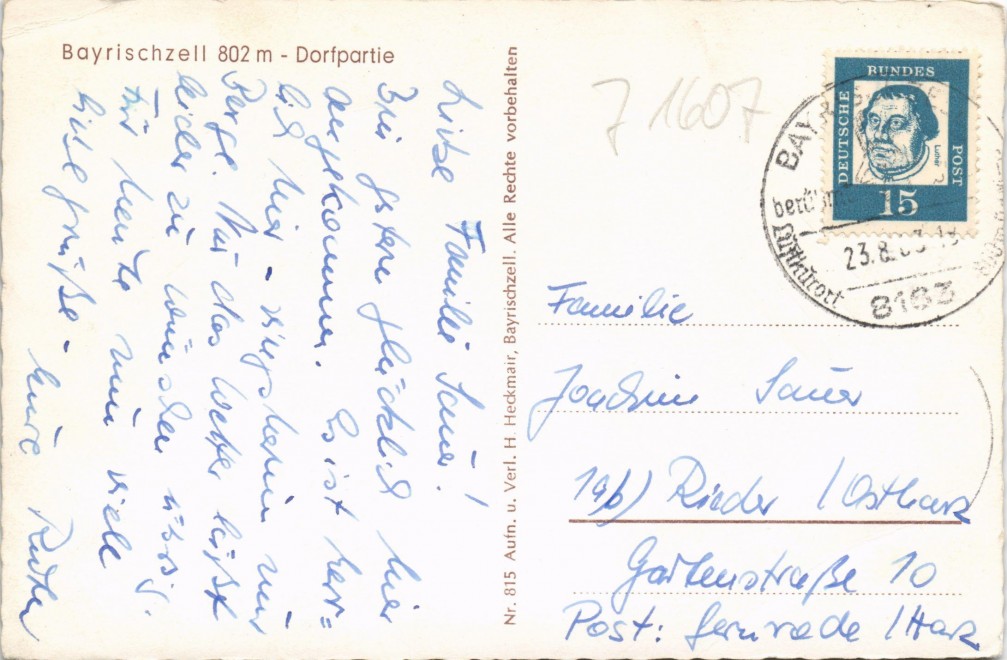 Bayrischzell 802 m - Dorfpartie
Liebe Familie Sauer!
Bin gestern glücklich hier
angekommen. Es ist herr=
lich hier - ringsherum nur
Berge. Nur das Wetter läßt
leider zu wünschen übrig.
Für heute nun viele
liebe Grüße - Eure
Nr. 815 Aufn. u. Verl. H. Heckmair, Bayrischzell. Alle Rechte vorbehalten
71607
DEUTSCHE
BUNDES
POST
Luther
15
23.8.63-18
Luftkurort
8163
Familie
Joachim Sauer
19b) Rieder /Ostharz
Gartenstraße 10
Post: Gernrode /Harz